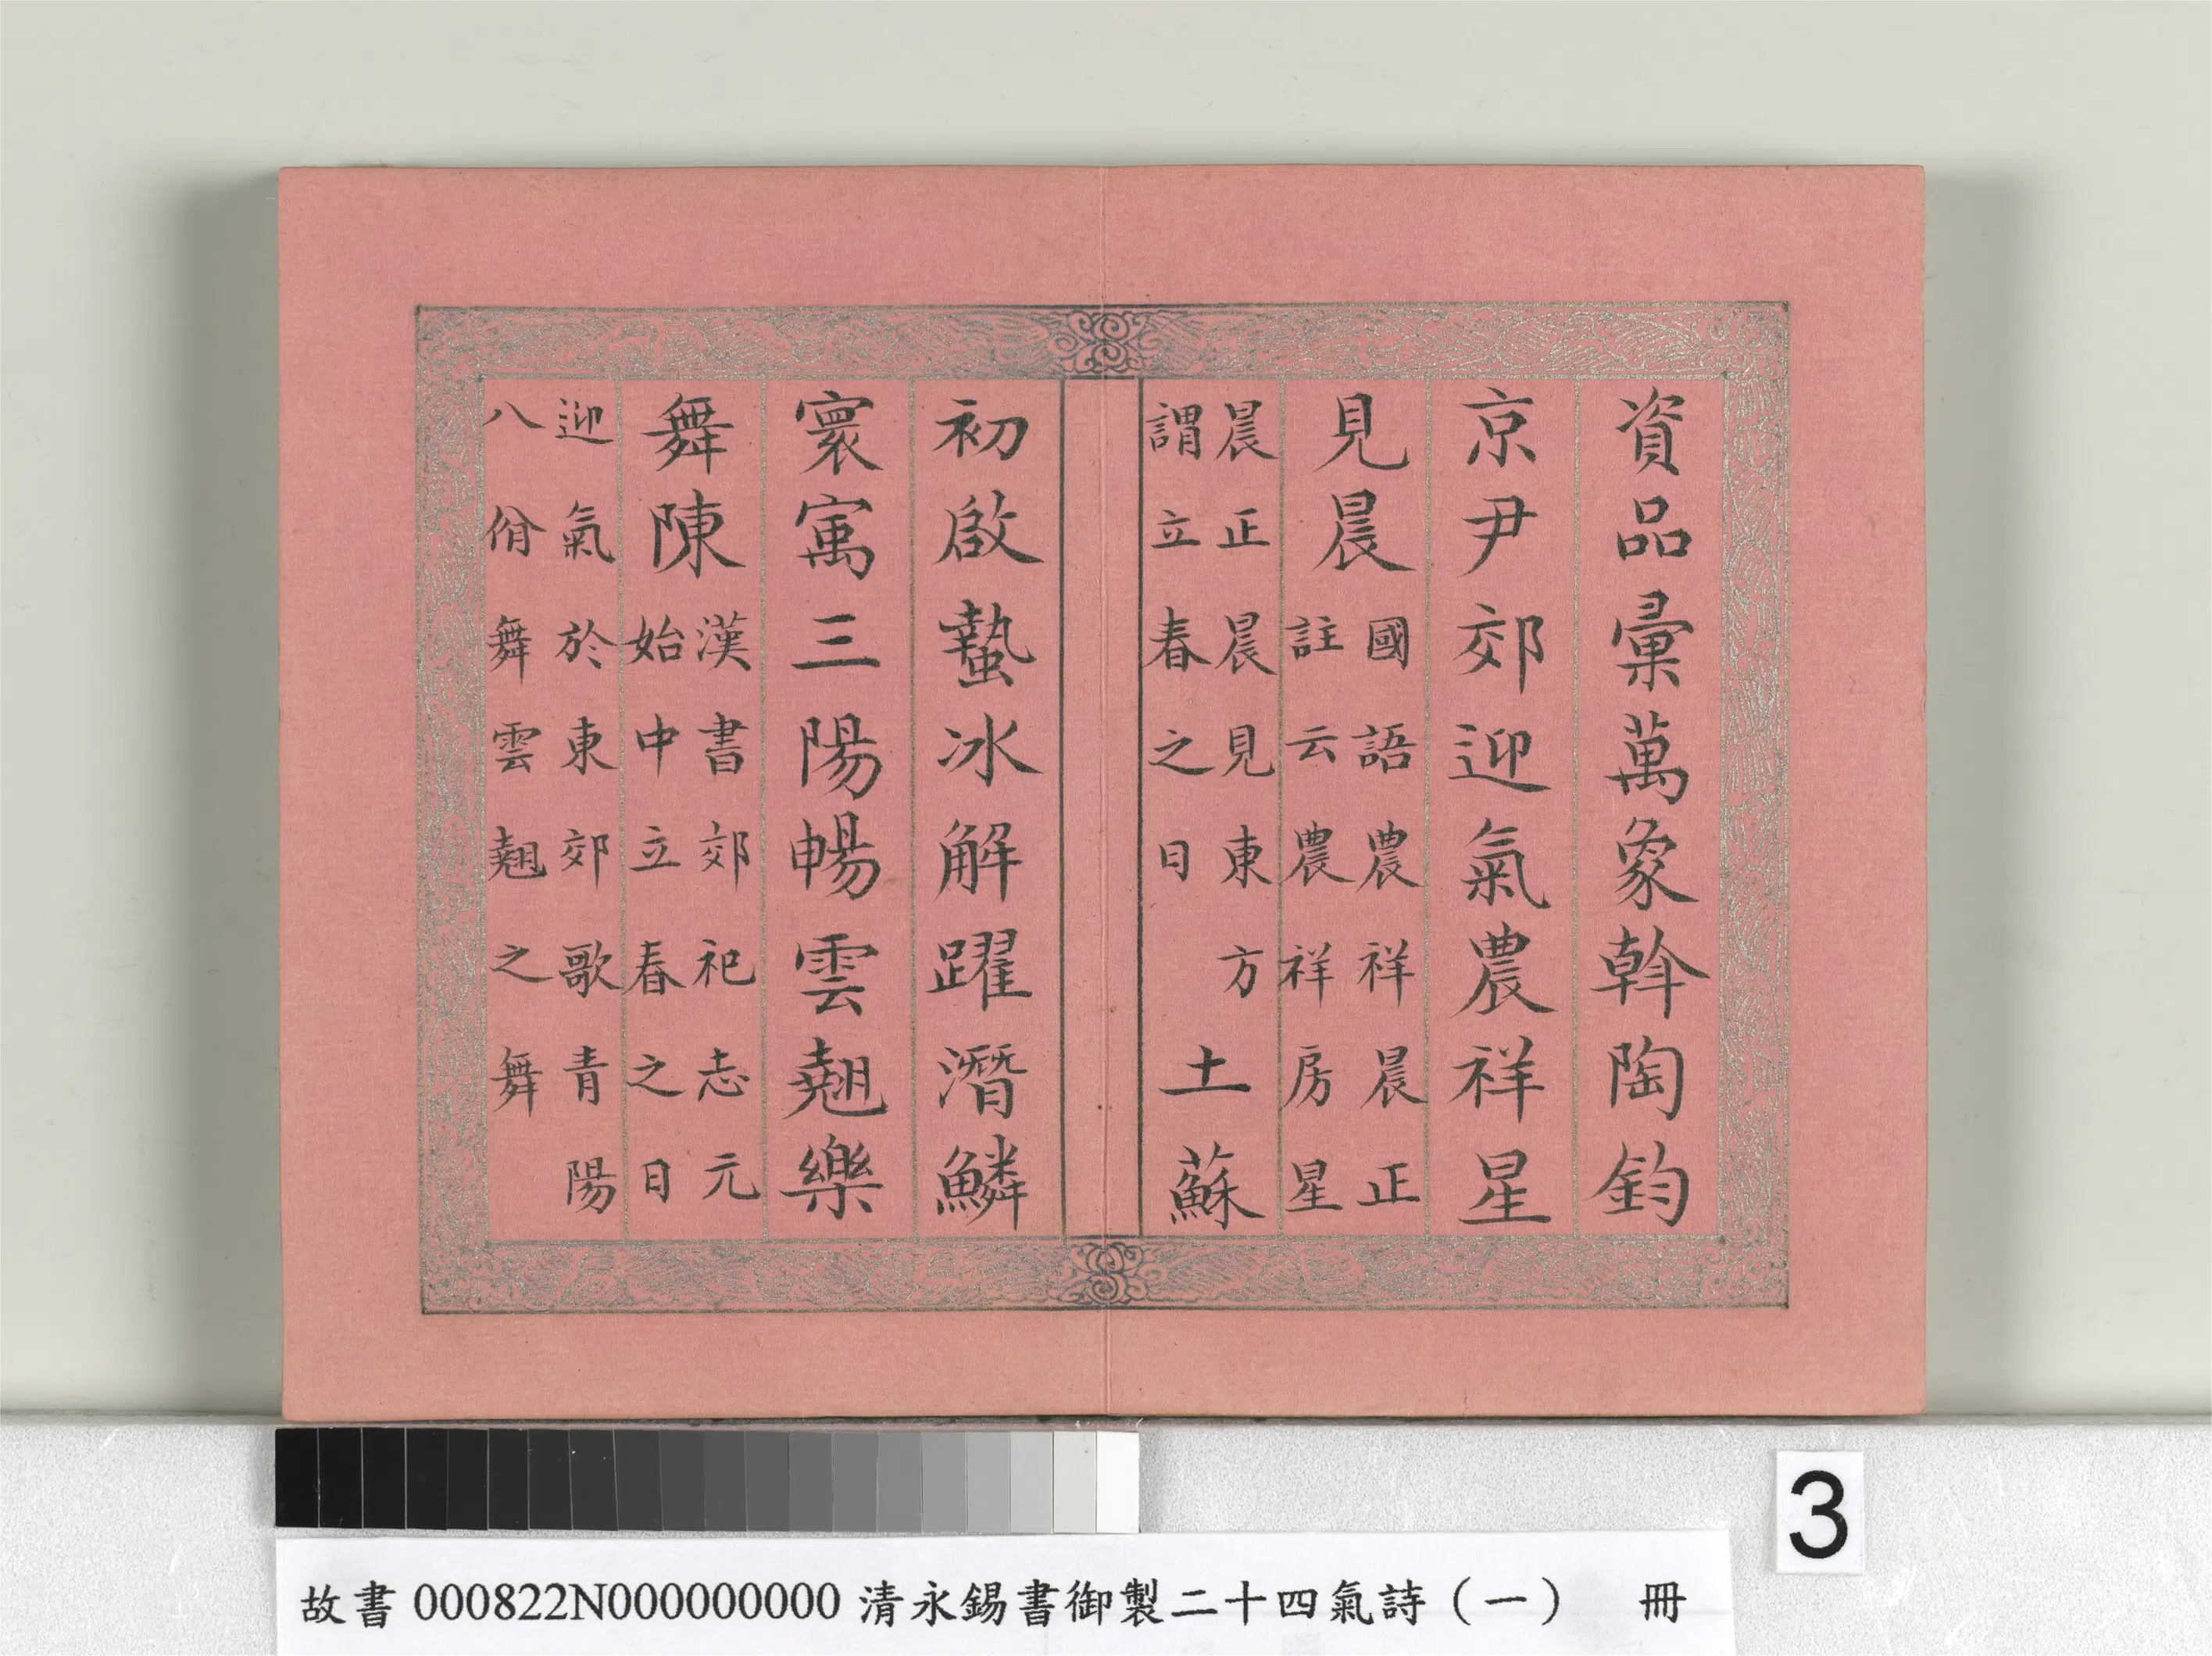 資品彙萬象斡陶鈞
京尹郊迎氣農祥星
見晨國語農祥晨正
註云農祥房星
晨正晨見東方
謂立春之日
土蘇
初啟蟄冰解躍潛鱗
寰㝢三陽暢雲翹樂
舞陳漢書郊祀志元
始中立春之日
迎氣於東郊歌青陽
八佾舞雲翹之舞
3
故書000822N000000000清永錫書御製二十四氣詩（一） 冊